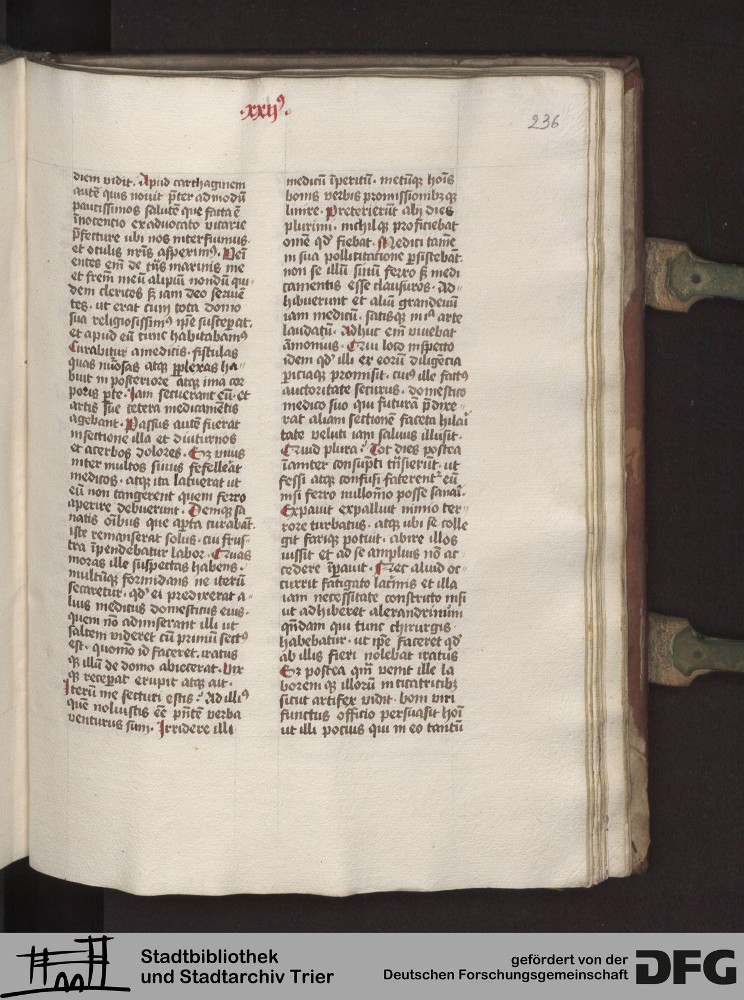 ·xxii⁹·
236
diem vidit. Apud carthaginem
autē quis nouit p̄ter admodū
paucissimos salutē que facta ē
īnocentio ex aduocato vicarie
p̄fecture vbi nos interfuimus
et oculis nr̄is aspexim⁹. Veni
entes em̄ de tn̄s marinis me
et frem̄ meū alipiū nondū qui
dem clericos sꝫ iam deo seruiē
tes. ut erat cum tota domo
sua religiosissim⁹ ip̄e susceperat.
et apud eū tunc habitabam⁹
Curabatur a medicis. fistulas
quas nūosas atqꝫ ꝑplexas ha
buit in posteriore atqꝫ ima cor
poris ꝑte. Iam secuerant eū. et
artis sue cetera medicamētis
agebant. Passus autē fuerat
in sectione illa et diuturnos
et acerbos dolores. Sꝫ vnus
inter multos sinus fefellerat
medicos. atqꝫ ita latuerat ut
eū non tangerent quem ferro
aperire debuerunt. Deniqꝫ sa
natis oībus que aꝑta curabāt.
iste remanserat solus. cui frus
tra īpendebatur labor. Quas
moras ille suspectas habens.
multūqꝫ formidans ne iterū
secaretur. qd' ei predixerat a
lius medicus domesticus eius.
quem nō admiserant illi ut
saltem videret cū primū sect⁹
est. quom̄o id faceret. iratus
qꝫ illū de domo abiecerat. vix
qꝫ receꝑat erupit atqꝫ ait.
Iterū me secturi estis? Ad illi⁹
quē noluistis ēē p̄ntē verba
venturus sum. Irridere illi
medicū īperitū. metūqꝫ hoīs
bonis verbis promissionibꝫqꝫ
linire. Preterierūt alij dies
plurimi. nichilqꝫ proficiebat
omē qd' fiebat. Medici tamē
in sua pollicitatione ꝑsistebāt.
non se illū sinū ferro sꝫ medi
camentis esse clausuros. Ad
hibuerunt et aliū grandeuū
iam medicū. satisqꝫ in illa arte
laudatū. Adhuc em̄ viuebat
āmonius. Qui loco inspecto
idem qd' illi ex eorū diligencia
ꝑiciaqꝫ promisit. cui⁹ ille fact⁹
auctoritate securus. domestico
medico suo qui futurā p̄dixe
rat aliam sectionē faceta hilari
tate veluti iam saluus illusit.
Quid plura? Tot dies postea
īaniter consūpti trāsierūt. ut
fessi atqꝫ confusi faterent² eū
nisi ferro nullom̄o posse sanari.
Expauit expalluit nimio ter
rore turbatus. atqꝫ ubi se colle
git fariqꝫ potuit. abire illos
iussit et ad se amplius nō ac
cedere īꝑauit. Nec aliud oc
currit fatigato lacrimis et illa
iam necessitate constricto nisi
ut adhiberet alexandrinum
qn̄dam qui tunc chirurgus
habebatur. ut ip̄e faceret qd'
ab illis fieri nolebat iratus
Sꝫ postea qm̄ venit ille la
borem qꝫ illorū in cicatricibꝫ
sicut artifex vidit. boni viri
functus officio persuasit hoīi
ut illi pocius qui in eo tantū
Stadtbibliothek
und Stadtarchiv Trier
gefördert von der
Deutschen Forschungsgemeinschaft
DFG